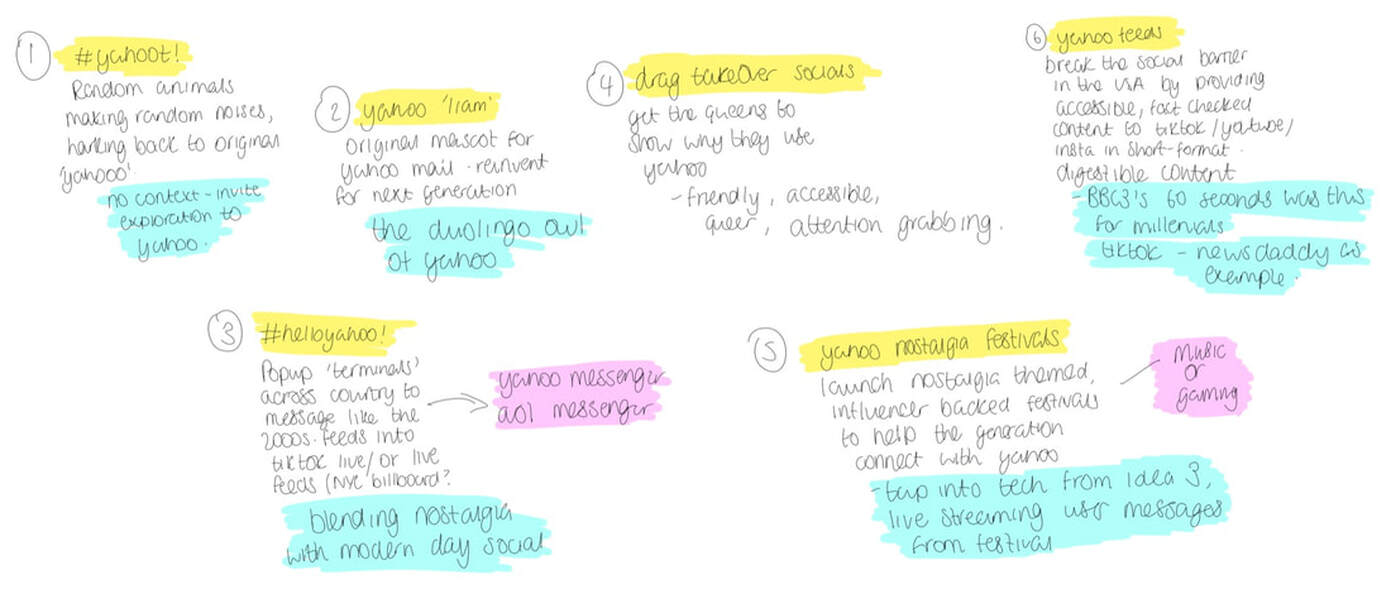 1
#yahoot!
Random animals
making random noises,
harking back to original
'yahooo'.
no context - invite
exploration to
yahoo.
2
yahoo 'liam'
original mascot for
yahoo mail. reinvent
for next generation
the duolingo owl
of yahoo
3
#helloyahoo!
Popup 'terminals'
across country to
message like the
2000s. feeds into
tiktok live/or live
feeds (NYC billboard?
yahoo messenger
aol messenger
blending nostalgia
with modern day social
4
drag takeover socials
get the queens to
show why they use
yahoo
- friendly, accessible,
queer, attention grabbing.
5
yahoo nostalgia festivals
launch nostalgia themed,
influencer backed festivals
to help the generation
connect with yahoo
music
or
gaming
- tap into tech from idea 3,
live streaming user messages
from festival
6
yahoo feeds
break the social barrier
in the USA by providing
accessible, fact checked
content to tiktok/youtube/
insta in short-format.
digestible content
- BBC3's 60 seconds was this
for millenials
tiktok - newsdaddy as
example.